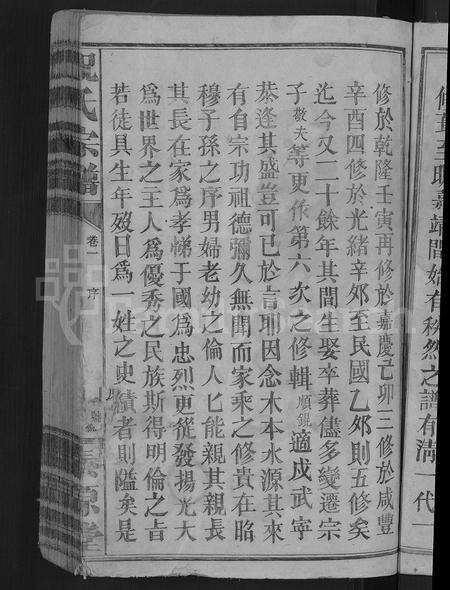 修於乾隆壬寅再修於嘉慶己卯三修於咸豐
辛酉四修於光緒辛卯至民國乙卯則五修矣
迄今又二十餘年其間生娶卒葬儘多變遷宗
子敬夫等更作第六次之修輯順錕適戍武寧
恭逢其盛豈可已於言耶因念木本水源其來
有自宗功祖德彌久無聞而家乘之修貴在昭
穆子孫之序男婦老幼之倫人匕能親其親長
其長在家為孝悌于國為忠烈更從發揚光大
為世界之主人為優秀之民族斯得明倫之旨
若徒具生年歿日為一姓之史績者則隘矣是
氏宗譜
卷一
序
修直至明嘉靖間始有秩然之譜有清一代